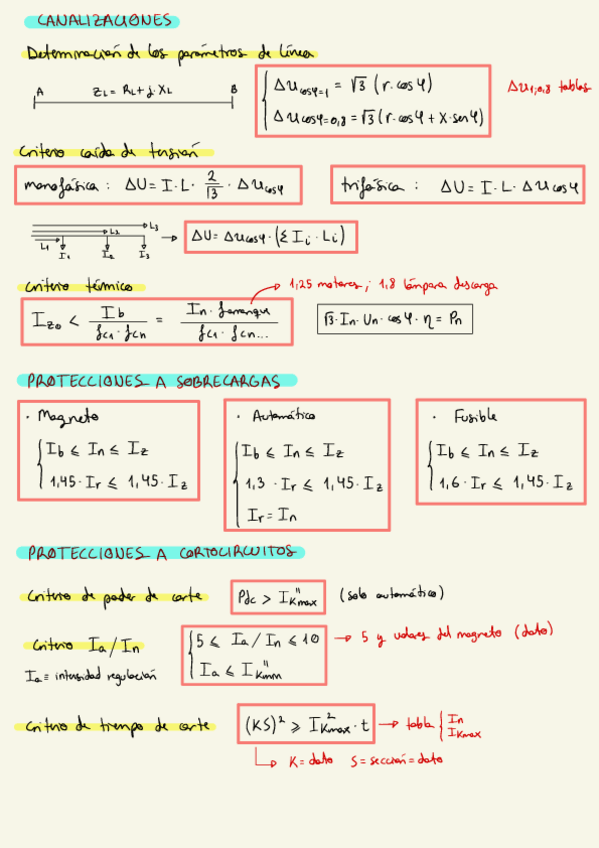 CANALIZACIONES
Determinación de los parámetros de línea
A ZL = RL + j·XL B
Δu cosφ=1 = √3 (r·cosφ)
Δu cosφ=0,8 = √3 (r·cosφ + X·senφ)
Δu 1;0,8 tablas
Criterio caída de tensión
monofásica: ΔU = I·L· 2/√3 · Δu cosφ
trifásica: ΔU = I·L·Δu cosφ
L3
L2
L1
I1 I2 I3
→ ΔU = Δu cosφ·(Σ Ii·Li)
Criterio térmico
→ 1,25 motores; 1,8 lámpara descarga
Iz0 < Ib / fc1·fcn = In·farranque / fc1·fcn...
√3·In·Un·cosφ·η = Pn
PROTECCIONES A SOBRECARGAS
· Magneto
Ib ⩽ In ⩽ Iz
1,45·Ir ⩽ 1,45·Iz
· Automático
Ib ⩽ In ⩽ Iz
1,3·Ir ⩽ 1,45·Iz
Ir = In
· Fusible
Ib ⩽ In ⩽ Iz
1,6·Ir ⩽ 1,45·Iz
PROTECCIONES A CORTOCIRCUITOS
Criterio de poder de corte
Pdc > I"Kmax (solo automático)
Criterio Ia/In
5 ⩽ Ia/In ⩽ 10
→ 5 y valores del magneto (dato)
Ia ≡ intensidad regulación
Ia ⩽ I"Kmin
Criterio de tiempo de corte
(KS)² ⩾ I²Kmax·t
→ tabla { In
IKmax
K = dato S = sección = dato